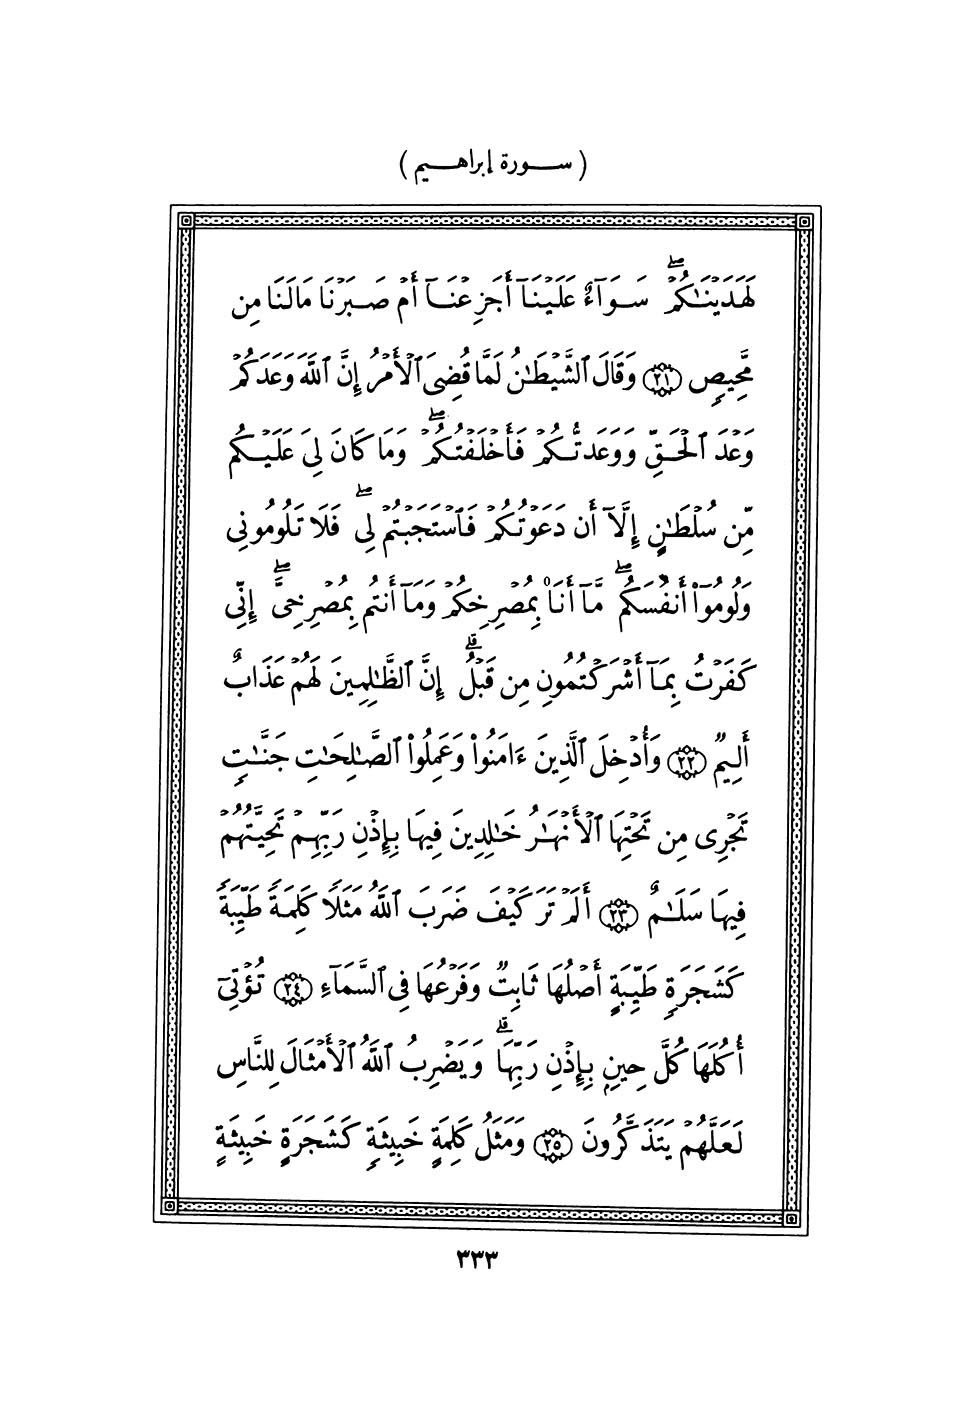 ( سورة إبراهيم )
لَهَدَيْنَٰكُمْۖ سَوَآءٌ عَلَيْنَآ أَجَزِعْنَآ أَمْ صَبَرْنَا مَالَنَا مِن
مَّحِيصٍۢ ٢١ وَقَالَ ٱلشَّيْطَٰنُ لَمَّا قُضِىَ ٱلْأَمْرُ إِنَّ ٱللَّهَ وَعَدَكُمْ
وَعْدَ ٱلْحَقِّ وَوَعَدتُّكُمْ فَأَخْلَفْتُكُمْۖ وَمَا كَانَ لِىَ عَلَيْكُم
مِّن سُلْطَٰنٍ إِلَّآ أَن دَعَوْتُكُمْ فَٱسْتَجَبْتُمْ لِىۖ فَلَا تَلُومُونِى
وَلُومُوٓا۟ أَنفُسَكُمۖ مَّآ أَنَا۠ بِمُصْرِخِكُمْ وَمَآ أَنتُم بِمُصْرِخِىَّۖ إِنِّى
كَفَرْتُ بِمَآ أَشْرَكْتُمُونِ مِن قَبْلُۗ إِنَّ ٱلظَّٰلِمِينَ لَهُمْ عَذَابٌ
أَلِيمٌۭ ٢٢ وَأُدْخِلَ ٱلَّذِينَ ءَامَنُوا۟ وَعَمِلُوا۟ ٱلصَّٰلِحَٰتِ جَنَّٰتٍۢ
تَجْرِى مِن تَحْتِهَا ٱلْأَنْهَٰرُ خَٰلِدِينَ فِيهَا بِإِذْنِ رَبِّهِمْ تَحِيَّتُهُمْ
فِيهَا سَلَٰمٌ ٢٣ أَلَمْ تَرَ كَيْفَ ضَرَبَ ٱللَّهُ مَثَلًۭا كَلِمَةًۭ طَيِّبَةًۭ
كَشَجَرَةٍۢ طَيِّبَةٍ أَصْلُهَا ثَابِتٌۭ وَفَرْعُهَا فِى ٱلسَّمَآءِ ٢٤ تُؤْتِىٓ
أُكُلَهَا كُلَّ حِينٍۭ بِإِذْنِ رَبِّهَاۗ وَيَضْرِبُ ٱللَّهُ ٱلْأَمْثَالَ لِلنَّاسِ
لَعَلَّهُمْ يَتَذَكَّرُونَ ٢٥ وَمَثَلُ كَلِمَةٍ خَبِيثَةٍۢ كَشَجَرَةٍ خَبِيثَةٍ
٣٣٣